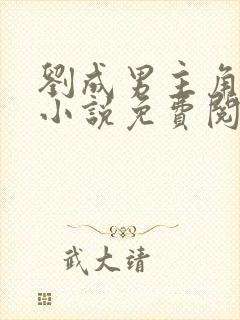 劉成男主角
小說免費閱
武大靖